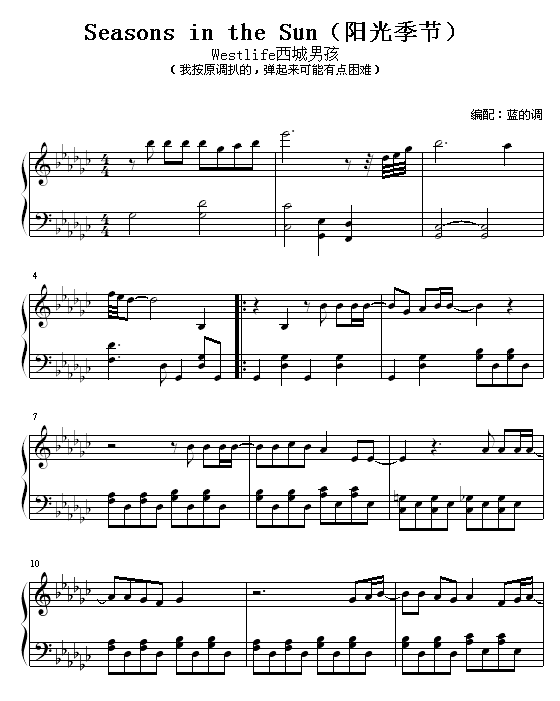 Seasons in the Sun（阳光季节）
Westlife西城男孩
（我按原调扒的，弹起来可能有点困难）
编配：蓝的调
4
4
4
4
4
7
10